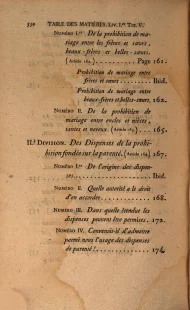 550 TABLE DES MATIÈRES. Liv. I.er Tit. V.
NUMÉRO I.er De la prohibition de ma-
riage entre les frères et sœurs,
beaux-frères et belles-sœurs.
(Article 162.) Page 161.
Prohibition de mariage entre
frères et sœurs. Ibid.
Prohibition de mariage entre
beaux-frères et belles-sœurs. 162.
NUMÉRO II. De la prohibition de
mariage entre oncles et nièces,
tantes et neveux. (Article 163.) 165.
II.e DIVISION. Des Dispenses de la prohi-
bition fondée sur la parenté. (Article 164.) 167.
NUMÉRO I.er De l'origine des dispen-
ses. Ibid.
NUMÉRO II. Quelle autorité a le droit
d'en accorder. 168.
NUMÉRO III. Dans quelle étendue les
dispenses peuvent être permises. 172.
NUMÉRO IV. Convenait-il d'admettre
parmi nous l'usage des dispenses
de parenté? 174